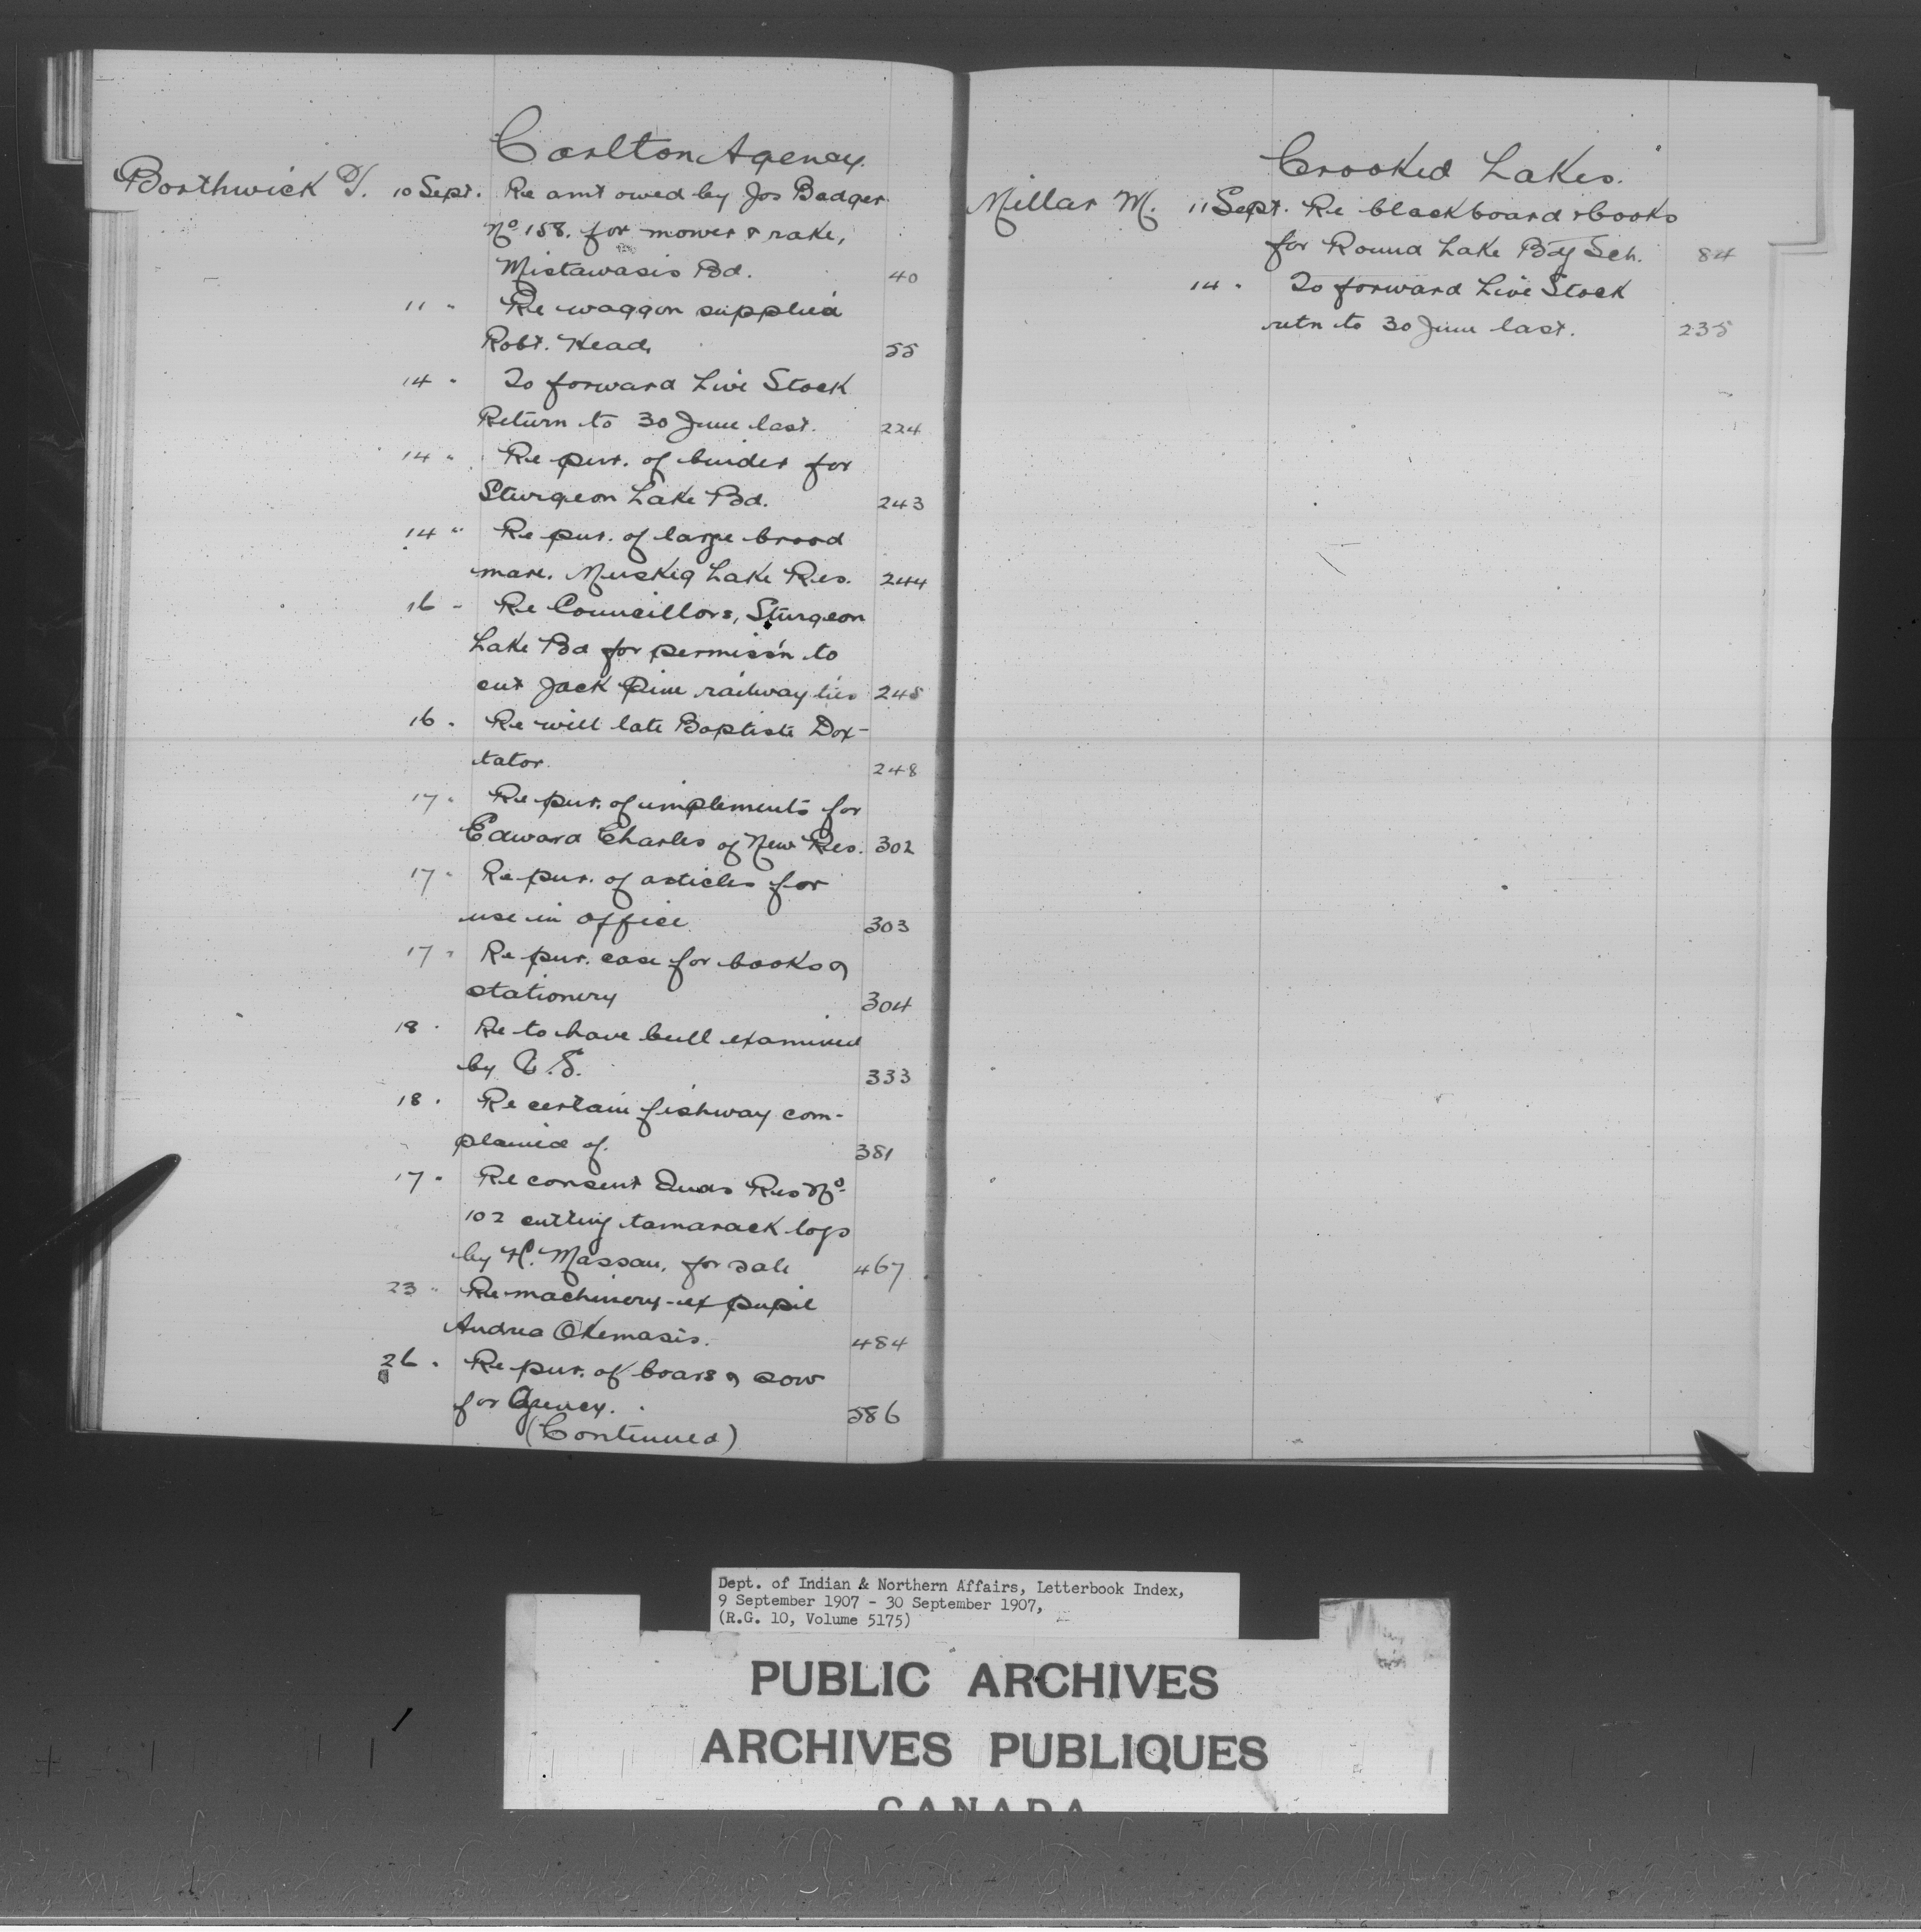 Carlton Agency.
Borthwick T. 10 Sept. Re amt owed by Jos Badger
No 158. for mower & rake,
Mistawasis Bd. 40
11 " Re waggon supplied
Robt. Head, 55
14 " To forward Live Stock
Return to 30 June last. 224
14 " Re pur. of binder for
Sturgeon Lake Bd. 243
14 " Re pur. of large brood
mare. Muskeg Lake Res. 244
16 " Re Councillors, Sturgeon
Lake Bd for permis'n to
cut Jack Pine railway ties 245
16 " Re will late Baptiste Dox-
tator. 248
17 " Re pur. of implements for
Edward Charles of New Res. 302
17 " Re pur. of articles for
use in office 303
17 " Re pur. case for books &
stationery 304
18 " Re to have bull examined
by V.S. 333
18 " Re certain fishway com-
plained of. 381
17 " Re consent Inds Res No
102 cutting tamarack logs
by H. Massan, for sale 467
23 " Re machinery - ex pupil
Andrea Okemasis. 484
26 " Re pur. of boars & sow
for Agency. 586
(Continued)
Crooked Lakes.
Millar M. 11 Sept. Re blackboard & books
for Round Lake Bdg Sch. 84
14 " To forward Live Stock
retn to 30 June last. 235
Dept. of Indian & Northern Affairs, Letterbook Index,
9 September 1907 - 30 September 1907,
(R.G. 10, Volume 5175)
PUBLIC ARCHIVES
ARCHIVES PUBLIQUES
CANADA